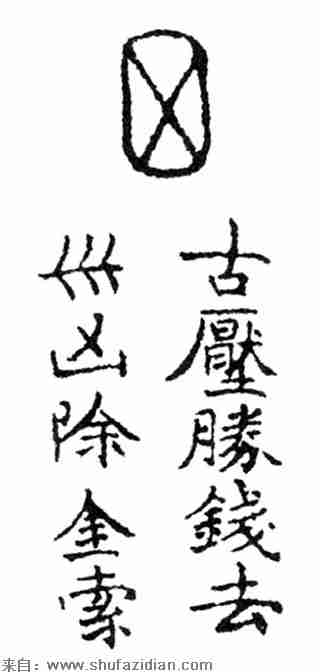 古壓勝錢去
凶除 金索
来自：www.shufazidian.com